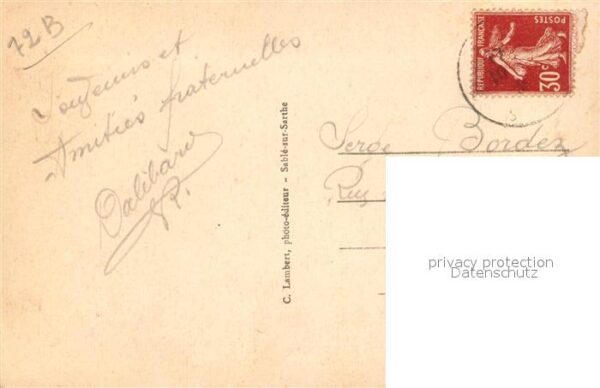 72B
Souvenirs et
Amitiés fraternelles
Dalibard
R.
C. Lambert, photo-éditeur - Sablé-sur-Sarthe
REPUBLIQUE FRANÇAISE
POSTES
30c
Serge Bordez
Rue
privacy protection
Datenschutz